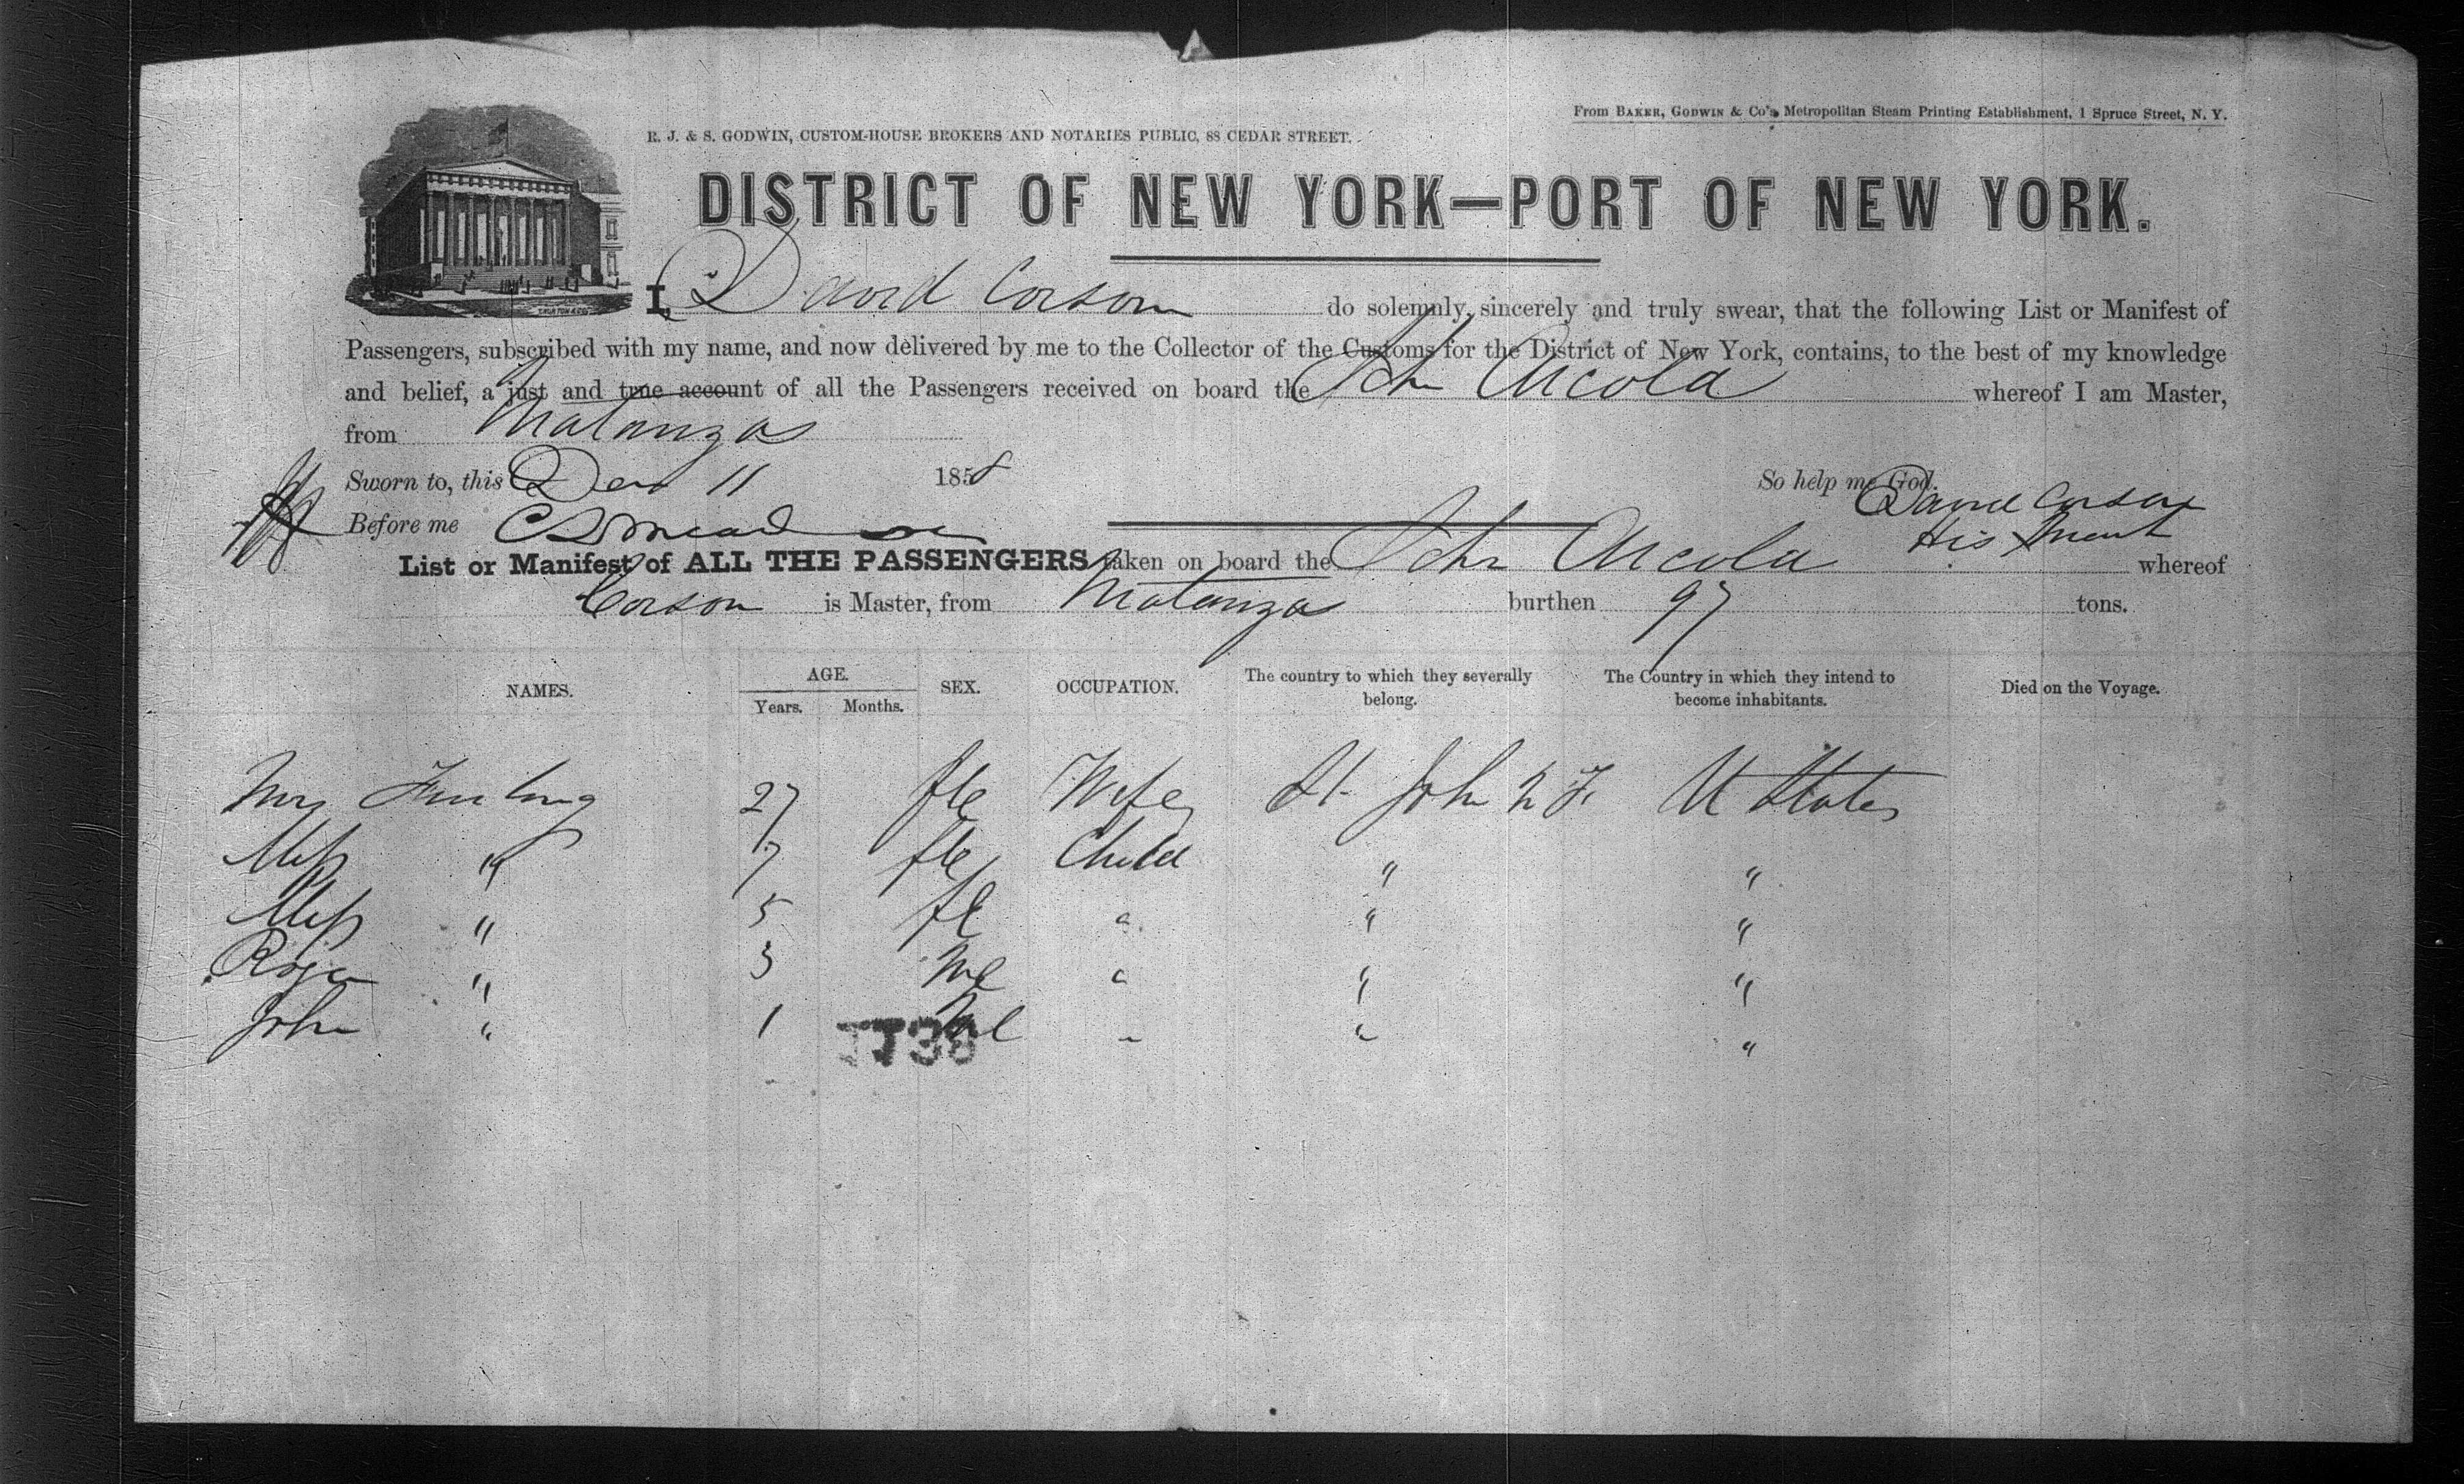 From BAKER, GODWIN & Co's Metropolitan Steam Printing Establishment, 1 Spruce Street, N. Y.
R. J. & S. GODWIN, CUSTOM-HOUSE BROKERS AND NOTARIES PUBLIC, 88 CEDAR STREET.
DISTRICT OF NEW YORK—PORT OF NEW YORK.
I, David Corson do solemnly, sincerely and truly swear, that the following List or Manifest of
Passengers, subscribed with my name, and now delivered by me to the Collector of the Customs for the District of New York, contains, to the best of my knowledge
and belief, a just and true account of all the Passengers received on board the Schr Arcola whereof I am Master,
from Matanzas
Sworn to, this Dec 11 1858 So help me God.
David Corson
Before me
His X Mark
List or Manifest of ALL THE PASSENGERS taken on board the Schr Arcola whereof
Corson is Master, from Matanzas burthen 97 tons.
NAMES. AGE. SEX. OCCUPATION. The country to which they severally belong. The Country in which they intend to become inhabitants. Died on the Voyage.
Years. Months.
Mrs Furlong 27 fle Wife St. John N F. U States
Miss " 7 fle Child " "
Miss " 5 fle " " "
Roger " 3 Me " " "
John " 1 Ml " " "
1138